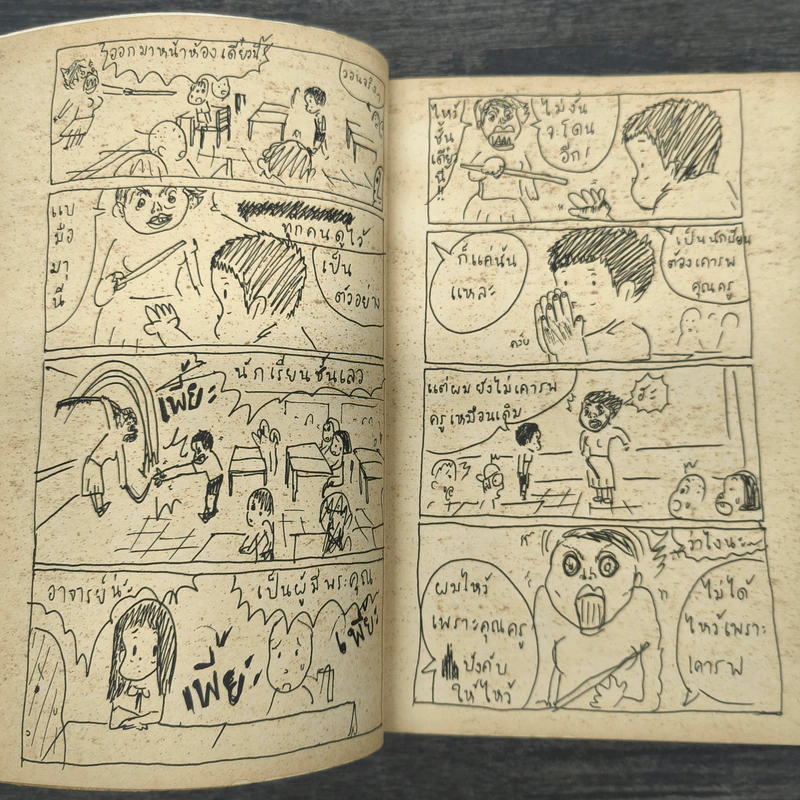 ออกมาหน้าห้องเดี๋ยวนี้
แบ
มือ
มา
นี่
ทุกคนดูไว้
เป็น
ตัวอย่าง
เพี๊ยะ
นักเรียนชั้นเลว
อาจารย์น่ะ
เป็นผู้มีพระคุณ
เพี๊ยะ
เพี๊ยะ
ไหว้
ชั้น
เดี๋ยว
นี้!!
ไม่งั้น
จะโดน
อีก!
ก็แค่นั้น
แหละ
เป็นนักเรียน
ต้องเคารพ
คุณครู
ควับ
แต่ผมยังไม่เคารพ
ครูเหมือนเดิม
ฮะ
ว่าไงนะ
ผมไหว้
เพราะคุณครู
บังคับ
ให้ไหว้
ไม่ได้
ไหว้เพราะ
เคารพ